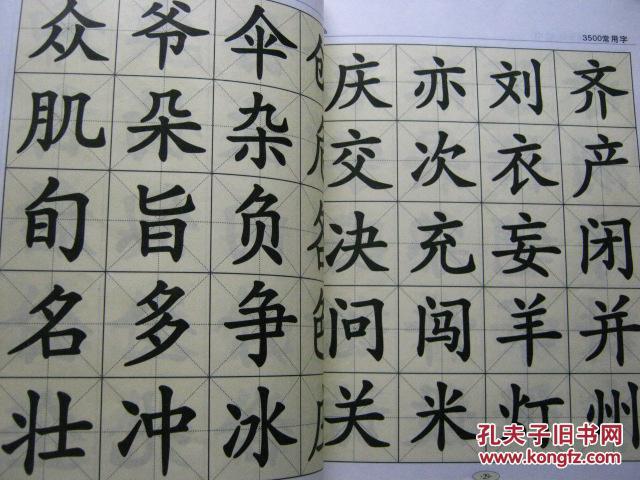 3500常用字
众爷伞
肌朵杂
旬旨负
名多争
壮冲冰
庆亦刘齐
交次衣产
决充妄闭
问闯羊并
关米灯州
孔夫子旧书网
www.kongfz.com